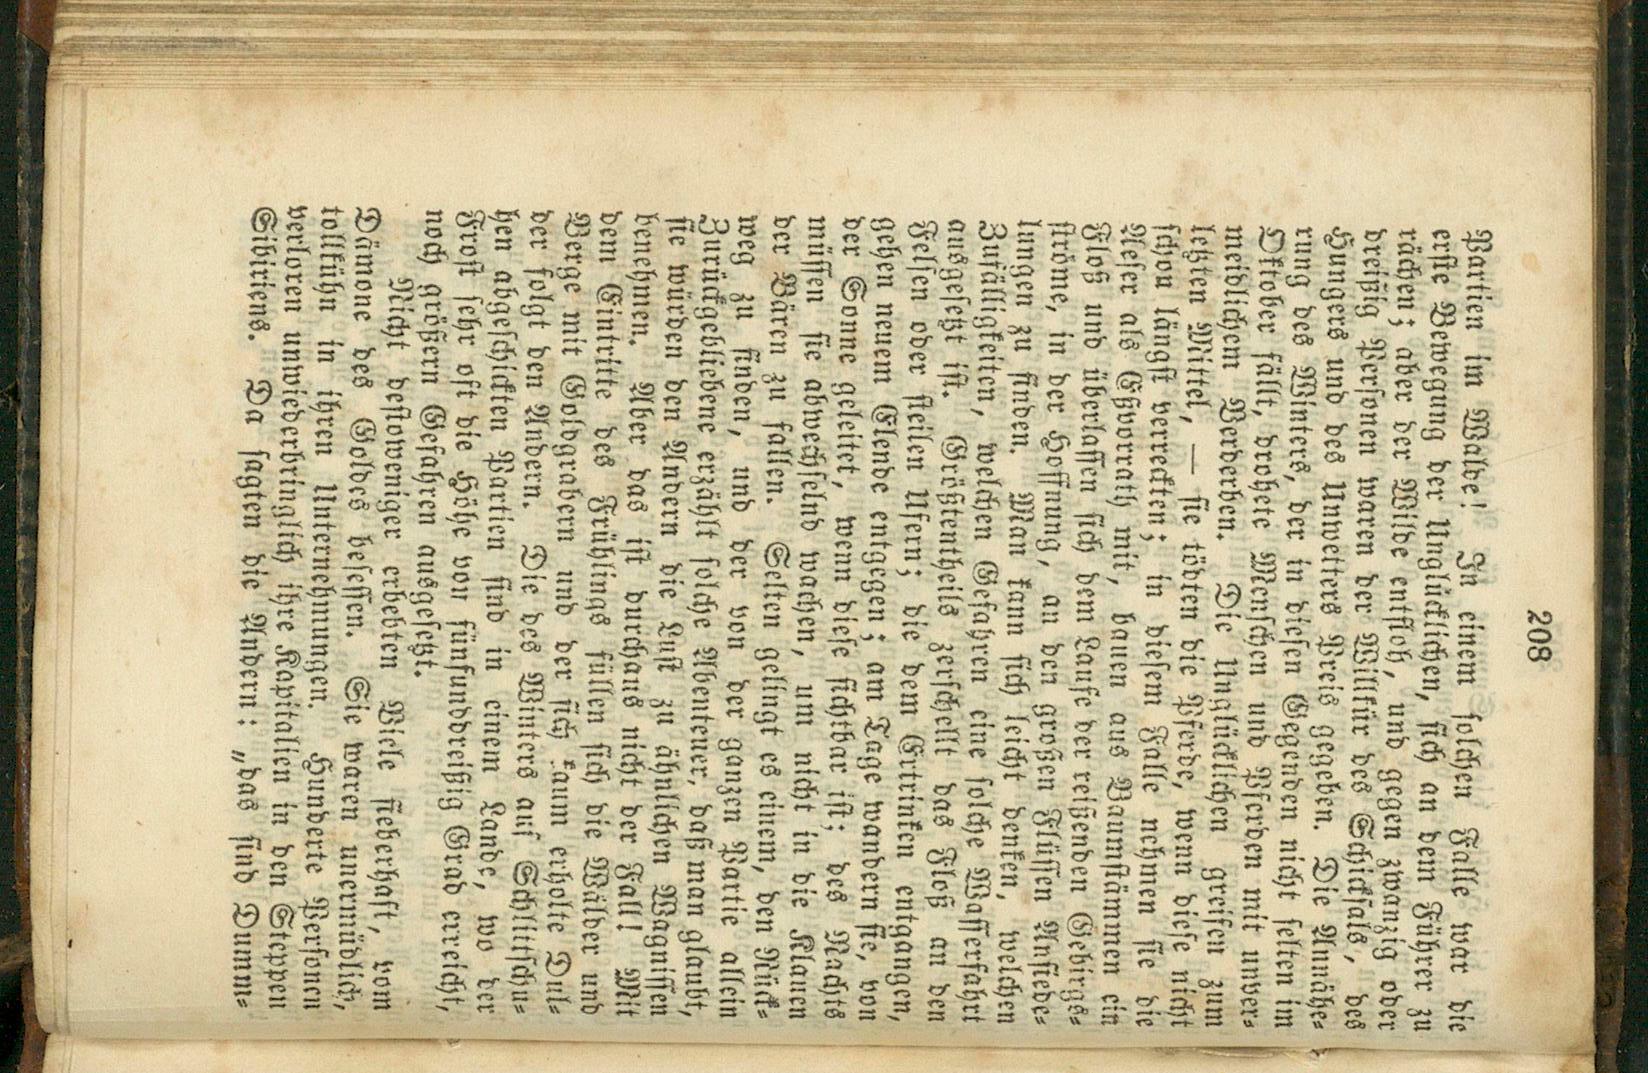 208
Partien im Walde! In einem solchen Falle war die
erste Bewegung der Unglücklichen, sich an dem Führer zu
rächen; aber der Wilde entfloh, und gegen zwanzig oder
dreißig Personen waren der Willkür des Schicksals, des
Hungers und des Unwetters Preis gegeben. Die Annähe-
rung des Winters, der in diesen Gegenden nicht selten im
Oktober fällt, drohete Menschen und Pferden mit unver-
meidlichem Verderben. Die Unglücklichen greifen zum
letzten Mittel, — sie tödten die Pferde, wenn diese nicht
schon längst verreckten; in diesem Falle nehmen sie die
Aeser als Eßvorrath mit, bauen aus Baumstämmen ein
Floß und überlassen sich dem Laufe der reißenden Gebirgs-
ströme, in der Hoffnung, an den großen Flüssen Ansiede-
lungen zu finden. Man kann sich leicht denken, welchen
Zufälligkeiten, welchen Gefahren eine solche Wasserfahrt
ausgesetzt ist. Größtentheils zerschellt das Floß an den
Felsen oder steilen Ufern; die dem Ertrinken entgangen,
gehen neuem Elende entgegen; am Tage wandern sie, von
der Sonne geleitet, wenn diese sichtbar ist; des Nachts
müssen sie abwechselnd wachen, um nicht in die Klauen
der Bären zu fallen. Selten gelingt es einem, den Rück-
weg zu finden, und der von der ganzen Partie allein
Zurückgebliebene erzählt solche Abenteuer, daß man glaubt,
sie würden den Andern die Lust zu ähnlichen Wagnissen
benehmen. Aber das ist durchaus nicht der Fall! Mit
dem Eintritte des Frühlings füllen sich die Wälder und
Berge mit Goldgrabern und der sich kaum erholte Dul-
der folgt den Andern. Die des Winters auf Schlittschu-
hen abgeschickten Partien sind in einem Lande, wo der
Frost sehr oft die Höhe von fünfunddreißig Grad erreicht,
noch größern Gefahren ausgesetzt.
Nicht destoweniger erbebten Viele fieberhaft, vom
Dämone des Goldes besessen. Sie waren unermüdlich,
tollkühn in ihren Unternehmungen. Hunderte Personen
verloren unwiederbringlich ihre Kapitalien in den Steppen
Sibiriens. Da sagten die Andern: „das sind Dumm-